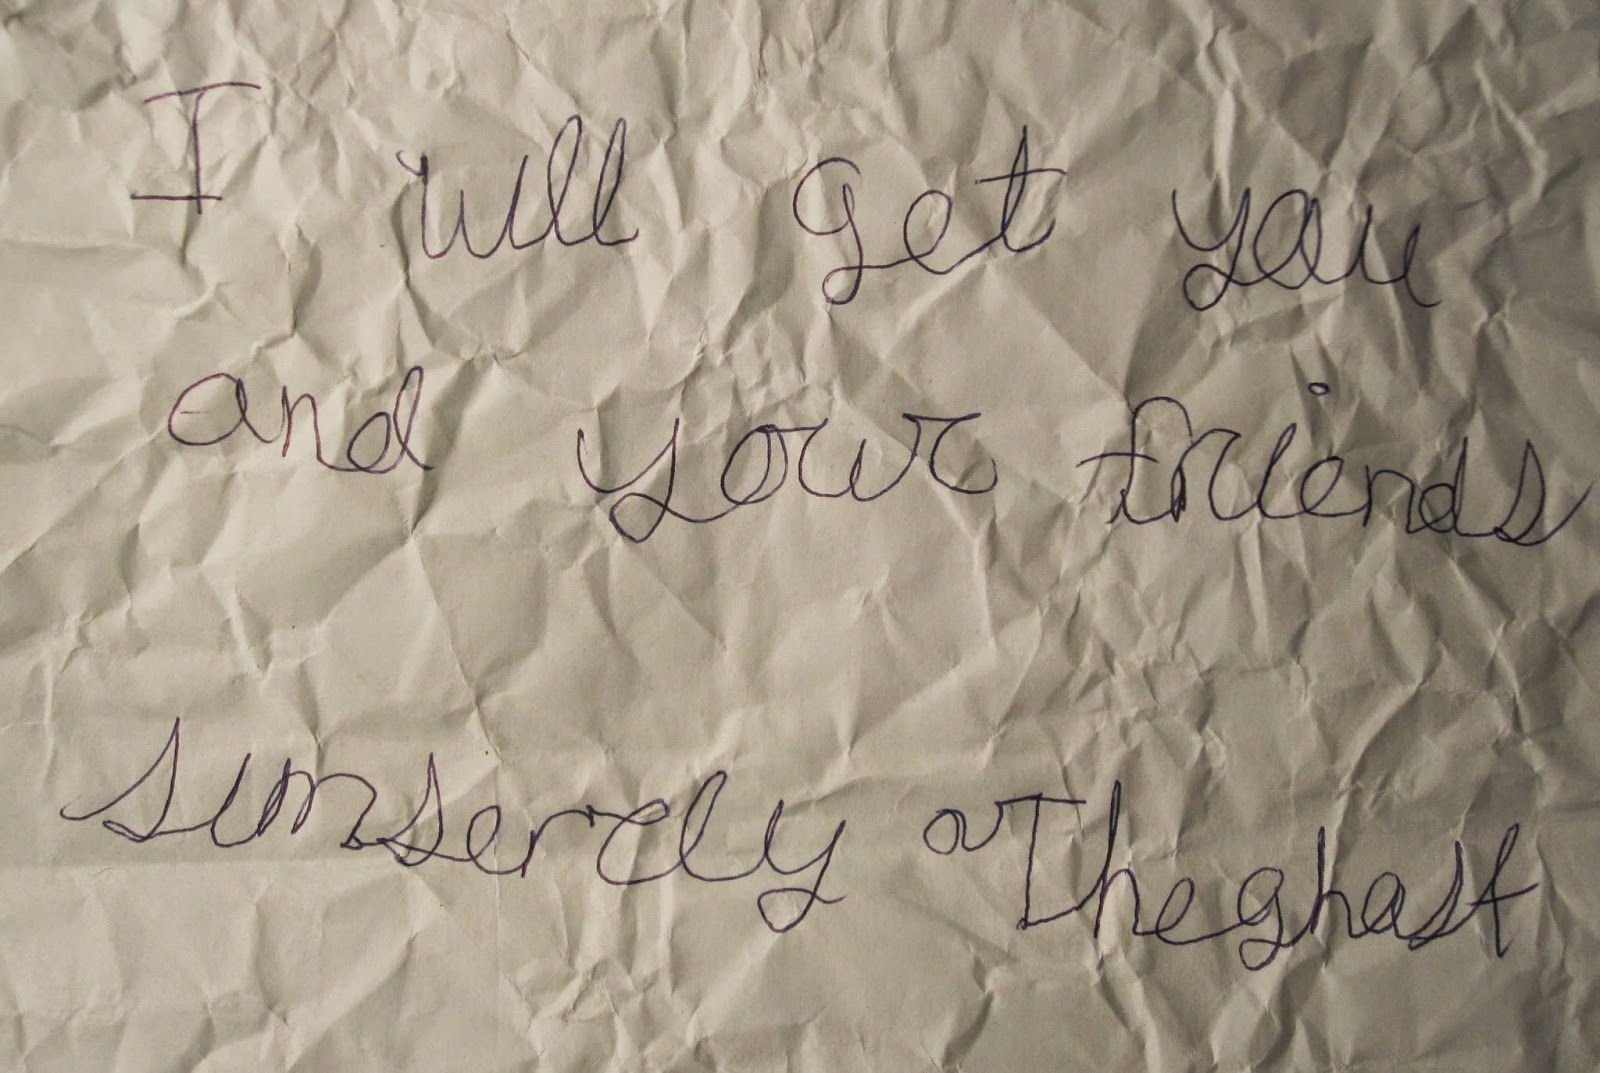 I will get you
and your friends
sinserely Theghost